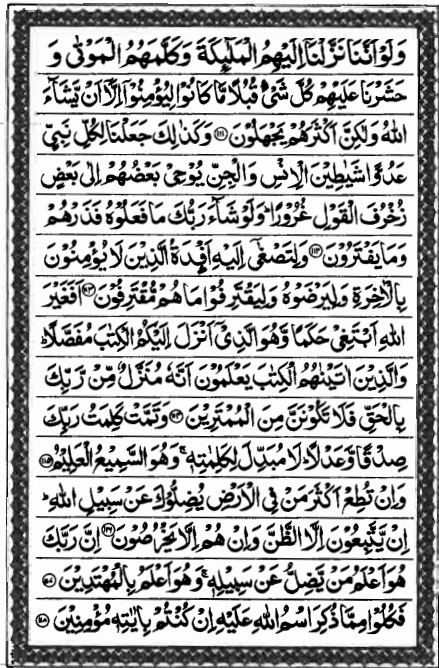 وَلَوْ اَنَّنَا نَزَّلْنَاۤ اِلَيْهِمُ الْمَلٰٓئِكَةَ وَكَلَّمَهُمُ الْمَوْتٰى وَ
حَشَرْنَا عَلَيْهِمْ كُلَّ شَىْءٍ قُبُلًا مَّا كَانُوْا لِيُؤْمِنُوْۤا اِلَّاۤ اَنْ يَّشَآءَ
اللّٰهُ وَلٰكِنَّ اَكْثَرَهُمْ يَجْهَلُوْنَ ﴿۱۱۱﴾ وَكَذٰلِكَ جَعَلْنَا لِكُلِّ نَبِيٍّ
عَدُوًّا شَيٰطِيْنَ الْاِنْسِ وَالْجِنِّ يُوْحِيْ بَعْضُهُمْ اِلٰى بَعْضٍ
زُخْرُفَ الْقَوْلِ غُرُوْرًا ؕ وَلَوْ شَآءَ رَبُّكَ مَا فَعَلُوْهُ فَذَرْهُمْ
وَمَا يَفْتَرُوْنَ ﴿۱۱۲﴾ وَلِتَصْغٰۤى اِلَيْهِ اَفْئِدَةُ الَّذِيْنَ لَا يُؤْمِنُوْنَ
بِالْاٰخِرَةِ وَلِيَرْضَوْهُ وَلِيَقْتَرِفُوْا مَا هُمْ مُّقْتَرِفُوْنَ ﴿۱۱۳﴾ اَفَغَيْرَ
اللّٰهِ اَبْتَغِيْ حَكَمًا وَّهُوَ الَّذِيْۤ اَنْزَلَ اِلَيْكُمُ الْكِتٰبَ مُفَصَّلًا ؕ
وَالَّذِيْنَ اٰتَيْنٰهُمُ الْكِتٰبَ يَعْلَمُوْنَ اَنَّهٗ مُنَزَّلٌ مِّنْ رَّبِّكَ
بِالْحَقِّ فَلَا تَكُوْنَنَّ مِنَ الْمُمْتَرِيْنَ ﴿۱۱۴﴾ وَتَمَّتْ كَلِمَتُ رَبِّكَ
صِدْقًا وَّعَدْلًا ؕ لَا مُبَدِّلَ لِكَلِمٰتِهٖ ۚ وَهُوَ السَّمِيْعُ الْعَلِيْمُ ﴿۱۱۵﴾
وَاِنْ تُطِعْ اَكْثَرَ مَنْ فِي الْاَرْضِ يُضِلُّوْكَ عَنْ سَبِيْلِ اللّٰهِ ؕ
اِنْ يَّتَّبِعُوْنَ اِلَّا الظَّنَّ وَاِنْ هُمْ اِلَّا يَخْرُصُوْنَ ﴿۱۱۶﴾ اِنَّ رَبَّكَ
هُوَ اَعْلَمُ مَنْ يَّضِلُّ عَنْ سَبِيْلِهٖ ۚ وَهُوَ اَعْلَمُ بِالْمُهْتَدِيْنَ ﴿۱۱۷﴾
فَكُلُوْا مِمَّا ذُكِرَ اسْمُ اللّٰهِ عَلَيْهِ اِنْ كُنْتُمْ بِاٰيٰتِهٖ مُؤْمِنِيْنَ ﴿۱۱۸﴾